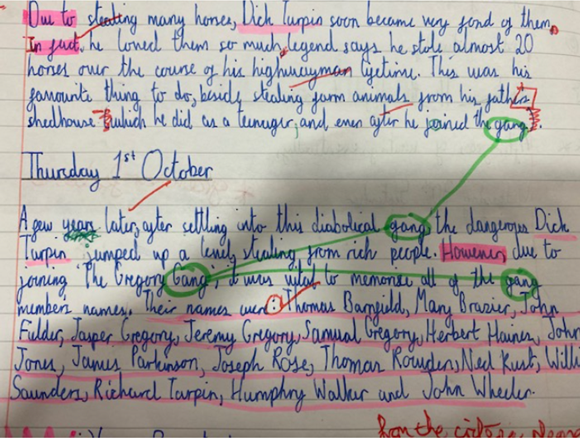 Due to stealing many horses, Dick Turpin soon became very fond of them.
In fact, he loved them so much, legend says he stole almost 20
horses over the course of his highwayman lifetime. This was his
favourite thing to do, besids stealing farm animals from his fathers
shedhouse which he did as a teenager, and even after he joined the gang.
Thursday 1st October
A few years later, after settling into this diabolical gang, the dangerous Dick
Turpin jumped up a level, stealing from rich people. However, due to
joining The Gregory Gang, it was vital to memorise all of the gang
members names. Their names were: Thomas Barnfield, Mary Brazier, John
Fielder, Jasper Gregory, Jeremy Gregory, Samual Gregory, Herbert Haines, John
Jones, James Parkinson, Joseph Rose, Thomas Rowden, Ned Rust, Will
Saunders, Richard Turpin, Humphry Walker and John Wheeler.